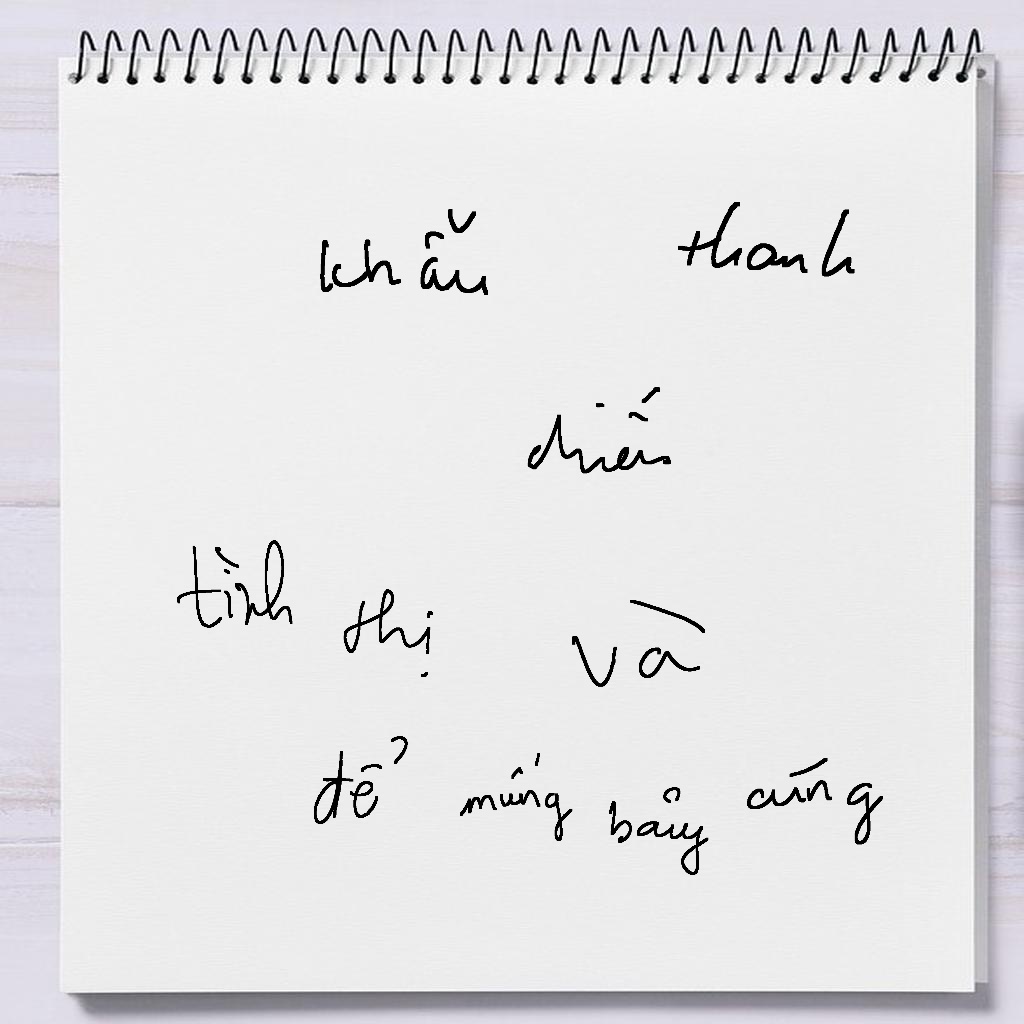 khẫu thanh
diến
tình thị và
để mứng bảy cúng